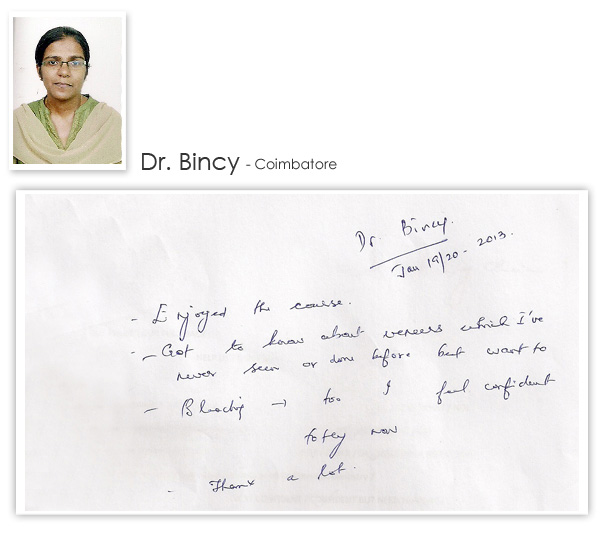 Dr. Bincy - Coimbatore
Dr. Bincy.
Jan 19/20 - 2013.
- Enjoyed the course.
- Got to know about veneers which I've
never seen or done before but want to
- Bleaching → too I feel confident
now
- Thank a lot.